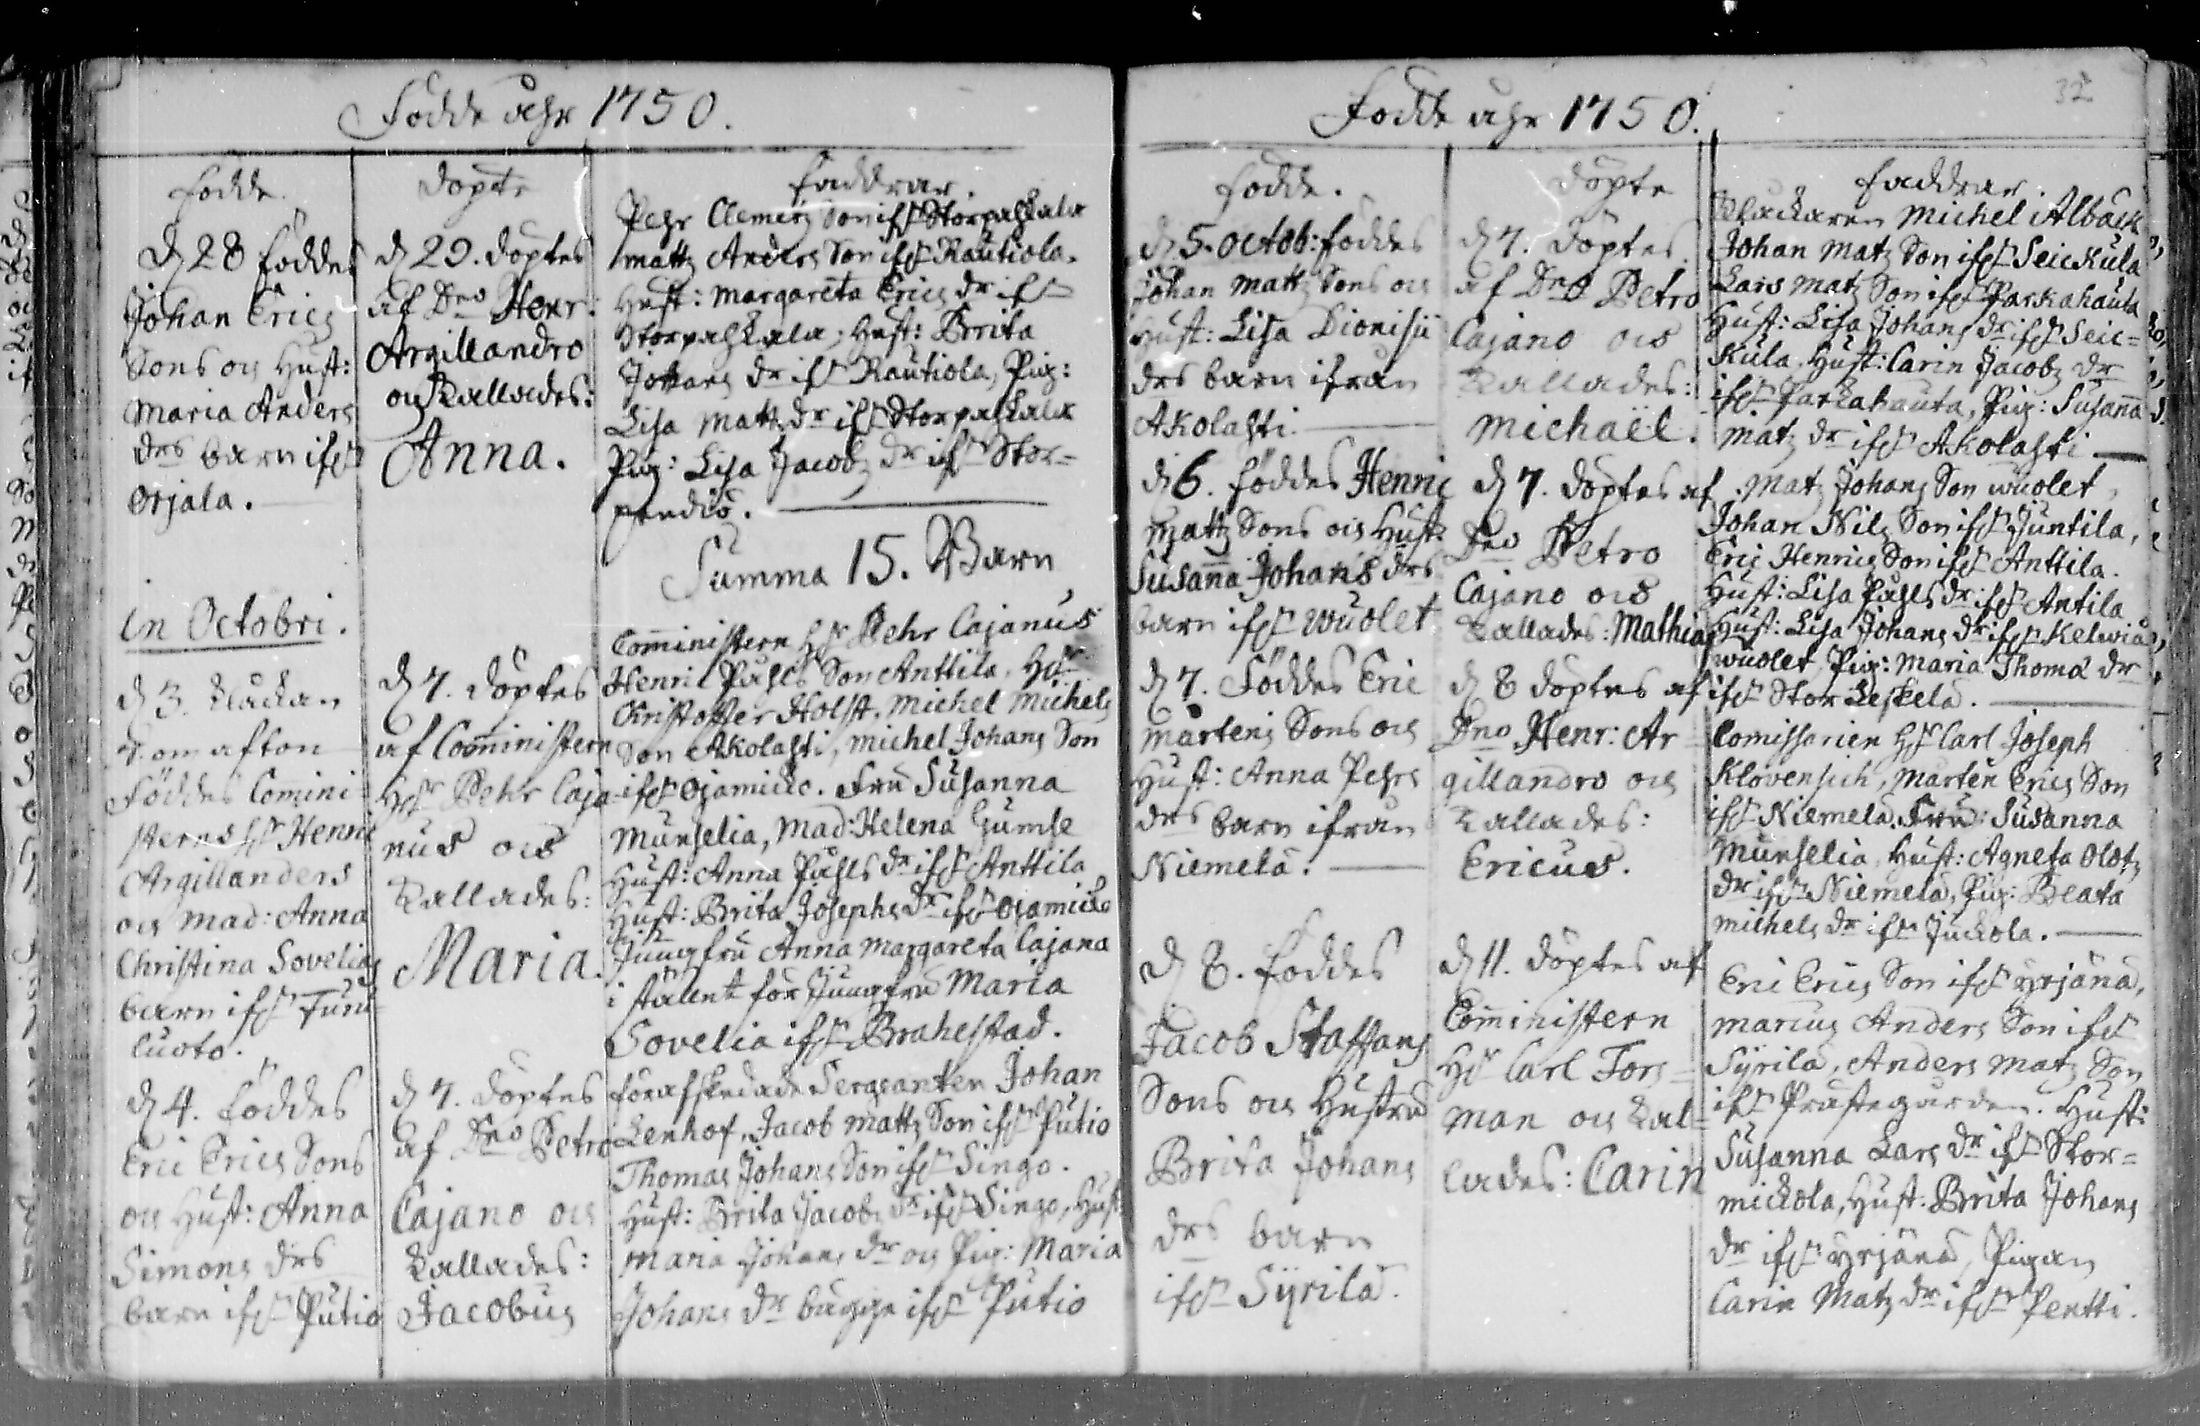 Födde åhr 1750.
födde.
döpte
faddrar.
d. 28 föddes
Johan Erics
Sons och Hust:
Maria Anders
drs barn ifrån
Orjala.
d. 29. döptes
af Dno Henr:
Argillandro
och kallades:
Anna.
Pehr Clemetz Son ifrån Storpahkala
mattz Anders Son ifrån Rautiola.
Hust: Margareta Erics dr ifrån
Storpahkala, Hust: Brita
Johans dr ifrån Rautiola, Pig:
Lisa Matts dr ifrån Storpahkala
Pig: Lisa Jacobz dr ifrån Stor=
Summa 15. Barn
in Octobri.
d. 3. klåckan
om afton
föddes Commini
sterns Hr Henric
Argillanders
och Mad: Anna
Christina Sovelias
barn ifrån Tuni
luoto.
d. 7. döptes
af Comministern
Hr Pehr Caja
nus och
kallades:
Maria.
Comministern Hr Pehr Cajanus
Henric Påhls Son Anttila, Hr
Christoffer Holst, Michel Michels
Son Akolahti, Michel Johans Son
ifrån Ojamickc. Fru Susanna
Munselia, Mad: Helena
Hust: Anna Påhls dr ifrån Anttila
Hust: Brita Josephs dr ifrån Ojamicko
Jungfru Anna Margareta Cajana
i stället för Jungfru Maria
Sovelia ifrån Brahestad.
d. 4. föddes
Eric Erics Sons
och Hust: Anna
Simons drs
barn ifrån Putio
d. 7. döptes
af Dno Petro
Cajano och
kallades:
Jacobus
förafskedade Sergeanten Johan
Lenhof, Jacob Mattz Son ifrån Putio
Thomas Johans Son ifrån Singo.
Hust: Brita Jacobs dr ifrån Singo, Hust:
Maria Johans dr och Pig: Maria
Johans dr bägge ifrån Putio
Födde åhr 1750.
32
födde.
döpte
faddrar.
d. 5. Octob: föddes
Johan Mattz Sons och
Hust: Lisa Dionisii
drs barn ifrån
Akolahti.
d. 7. döptes
af Dno Petro
Cajano och
kallades:
Michaël.
Klåckaren Michel Albäck
Johan Matz Son ifrån Seickula
Lars Matz Son ifrån Parkahauta
Hust: Lisa Johans dr ifrån Seic=
kula, Hust: Carin Jacobz dr
ifrån Parkahauta, Pig: Susanna
Matz dr ifrån Akolahti
d. 6. föddes Henric
Mattz Sons och Hust:
Susanna Johans drs
barn ifrån Wuolet
d. 7. döptes af
Dno Petro
Cajano och
kallades: Mathias
Matz Johans Son Wuolet,
Johan Nils Son ifrån Juntila,
Eric Henrics Son ifrån Anttila.
Hust: Lisa Påhls dr ifrån Antila
Hust: Lisa Johans dr ifrån Kelwiå
Wuolet, Pig: Maria Thomæ dr
ifrån Storleskelä.
d. 7. Föddes Eric
Mårtens Sons och
Hust: Anna Pehrs
drs barn ifrån
Niemelä.
d. 8 döptes af
Dno Henr: Ar
gillandro och
kallades:
Ericus.
Comissarien Hr Carl Joseph
Klövensich, Mårten Erics Son
ifrån Niemelä. Fru: Susanna
Munselia, Hust: Agneta Olofz
dr ifrån Niemelä, Pig: Beata
Michels dr ifrån Juckola.
d. 8. föddes
Jacob Staffans
Sons och Hustru
Brita Johans
drs barn
ifrån Syrilä.
d. 11. döptes af
Comministern
Hr Carl Fors=
man och kal=
lades: Carin
Eric Erics Son ifrån Yrjänä,
Marcus Anders Son ifrån
Syrilä, Anders Matz Son
ifrån Prästegården. Hust:
Susanna Lars dr ifrån Stor=
mickola, Hust: Brita Johans
dr ifrån Yrjänä, Pigan
Carin Matz dr ifrån Pentti.